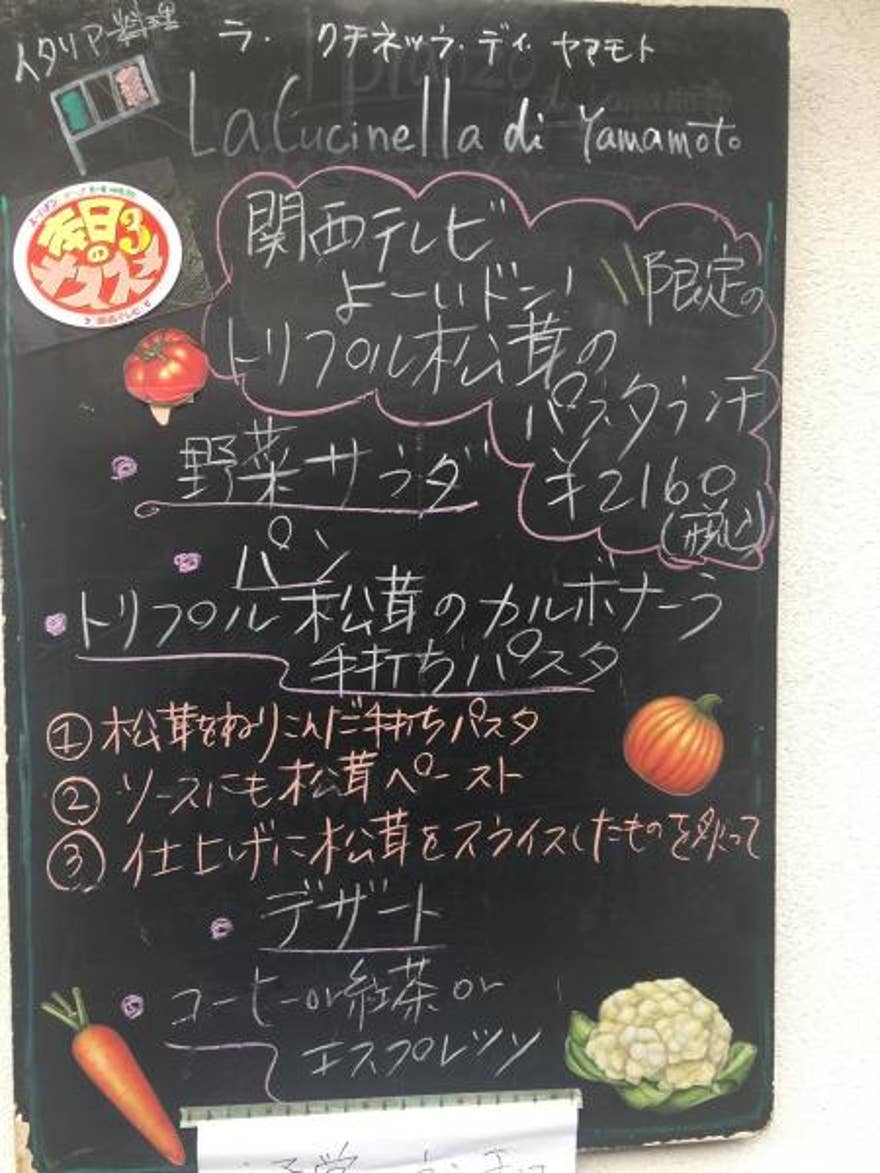 イタリア料理
ラ・クチネッラ・ディ・ヤマモト
La Cucinella di Yamamoto
本日の3
オススメ
関西テレビ
よーいドン!
限定の
トリプル松茸の
パスタランチ
¥2160
(税込)
野菜サラダ
パン
トリプル松茸のカルボナーラ
手打ちパスタ
①松茸をねりこんだ手打ちパスタ
②ソースにも松茸ペースト
③仕上げに松茸をスライスしたものを炒って
デザート
コーヒーor紅茶or
エスプレッソ